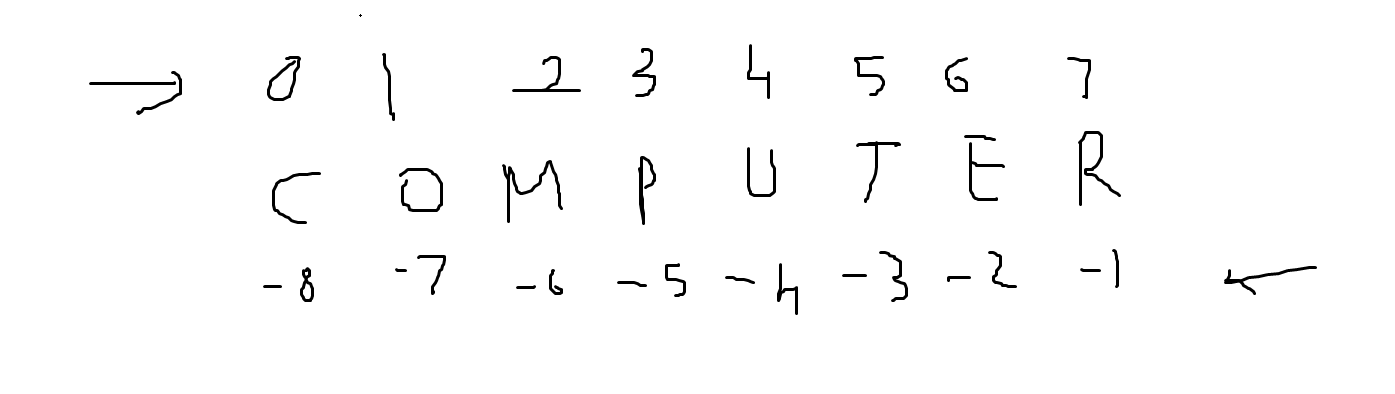 0 1 2 3 4 5 6 7
C O M P U T E R
-8 -7 -6 -5 -4 -3 -2 -1